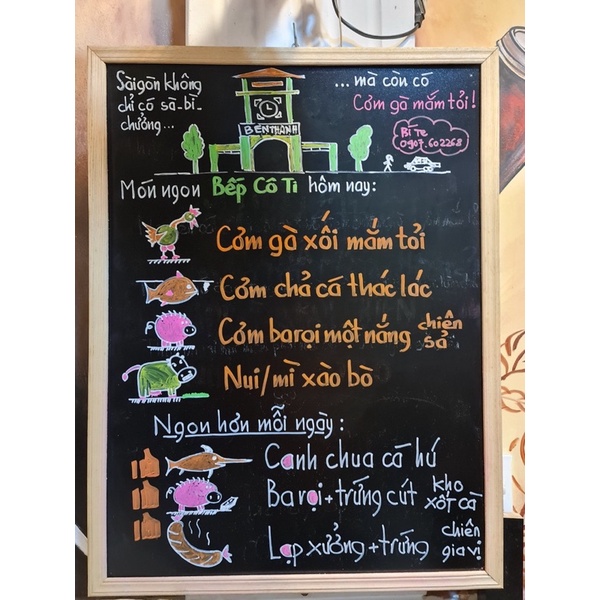 Sàigòn không
chỉ có sà-bì-
chưởng...
... mà còn có
Cơm gà mắm tỏi!
BẾN THÀNH
Bí Te
0907.602268
Món ngon Bếp Cô Ti hôm nay:
Cơm gà xối mắm tỏi
Cơm chả cá thác lác
Cơm ba rọi một nắng chiên sả
Nui/mì xào bò
Ngon hơn mỗi ngày:
Canh chua cá hú
Ba rọi + trứng cút kho xốt cà
Lạp xưởng + trứng chiên gia vị